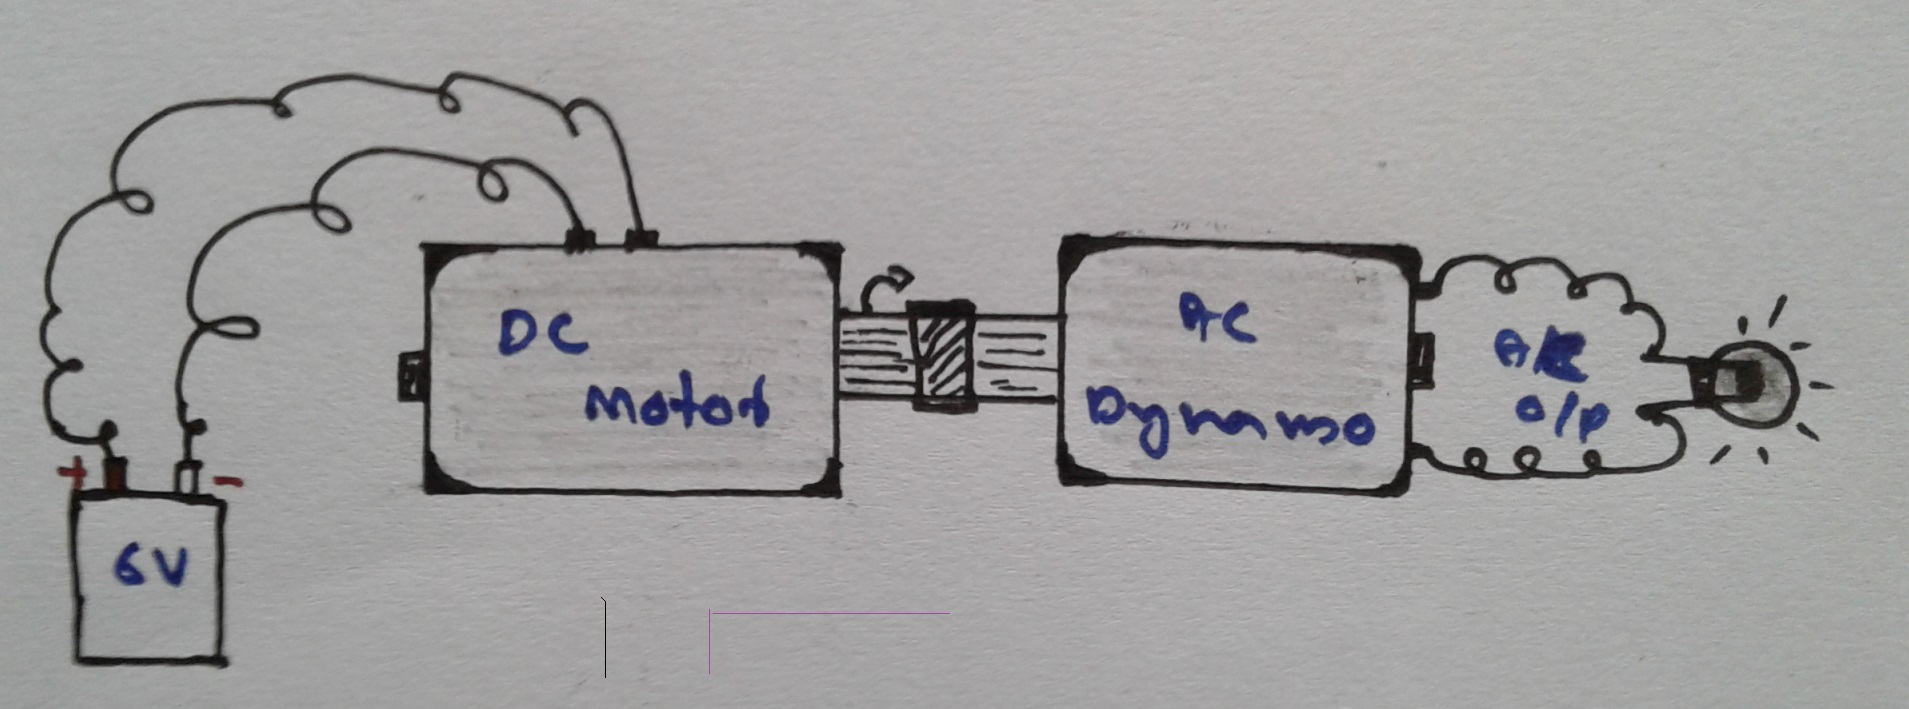 + -
6V
DC
Motor
AC
Dynamo
A/C
O/P